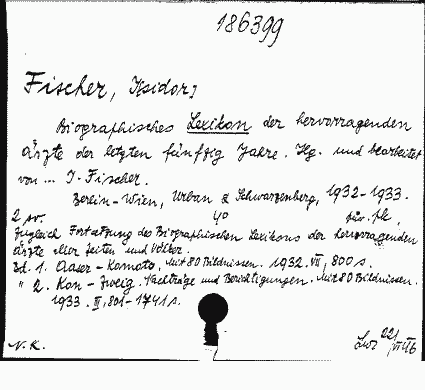 186399
Fischer, Isidor,
Biographisches Lexikon der hervorragenden
Ärzte der letzten fünfzig Jahre. Hg. und bearbeitet
von ... I. Fischer.
Berlin-Wien, Urban & Schwarzenberg, 1932-1933.
2 sv. 4°
Zugleich Fortsetzung des Biographischen Lexikons der hervorragenden
Ärzte aller Zeiten und Völker.
Bd. 1. Aaser-Komoto. Mit 80 Bildnissen. 1932. VII, 800 s.
" 2. Kon-Zweig. Nachträge und Berichtigungen. Mit 80 Bildnissen.
1933. III, 801-1741 s.
N.K.